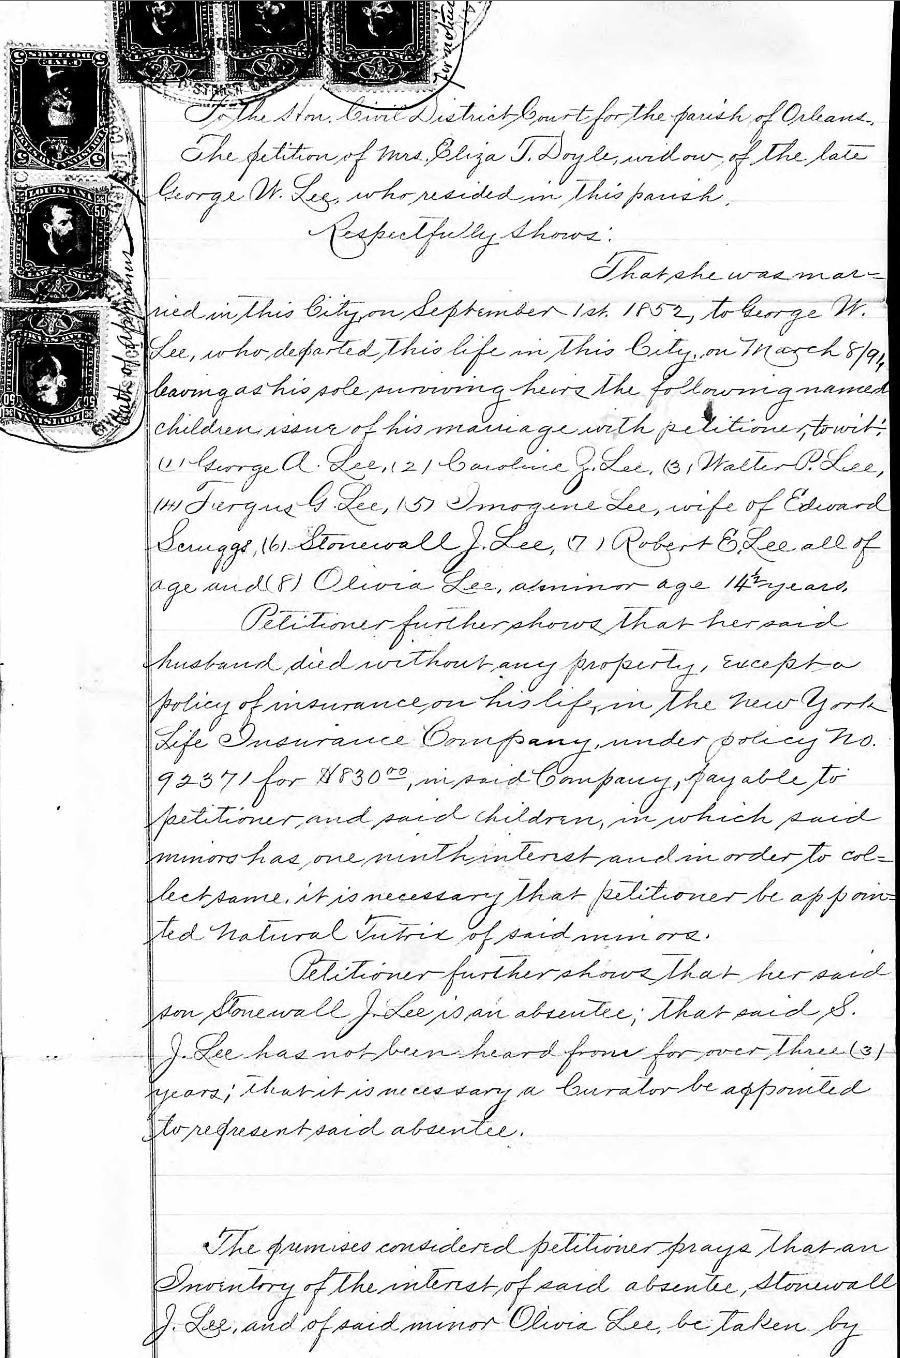 To the Hon. Civil District Court for the parish of Orleans.
The petition of Mrs. Eliza T. Doyle, widow, of the late
George W. Lee, who resided in this parish,
Respectfully shows:
That she was mar=
ried in this City, on September 1st. 1852, to George W.
Lee, who departed this life in this City, on March 8/91,
leaving as his sole surviving heirs the following named
children issue of his marriage with petitioner, to wit:
(1) George A. Lee, (2) Caroline Z. Lee, (3) Walter P. Lee,
(4) Fergus G. Lee, (5) Imogene Lee, wife of Edward
Scruggs, (6) Stonewall J. Lee, (7) Robert E. Lee all of
age and (8) Olivia Lee, a minor age 14½ years.
Petitioner further shows that her said
husband died without any property, except a
policy of insurance, on his life, in the New York
Life Insurance Company, under policy No.
92371 for $830 00, in said Company, payable to
petitioner and said children, in which said
minors has one ninth interest and in order to col=
lect same, it is necessary that petitioner be appoin=
ted Natural Tutrix of said minors.
Petitioner further shows that her said
son Stonewall J. Lee is an absentee; that said S.
J. Lee has not been heard from for over three (3)
years; that it is necessary a Curator be appointed
to represent said absentee.
The premises considered petitioner prays that an
Inventory of the interest of said absentee, Stonewall
J. Lee, and of said minor Olivia Lee, be taken by
LOUISIANA
50